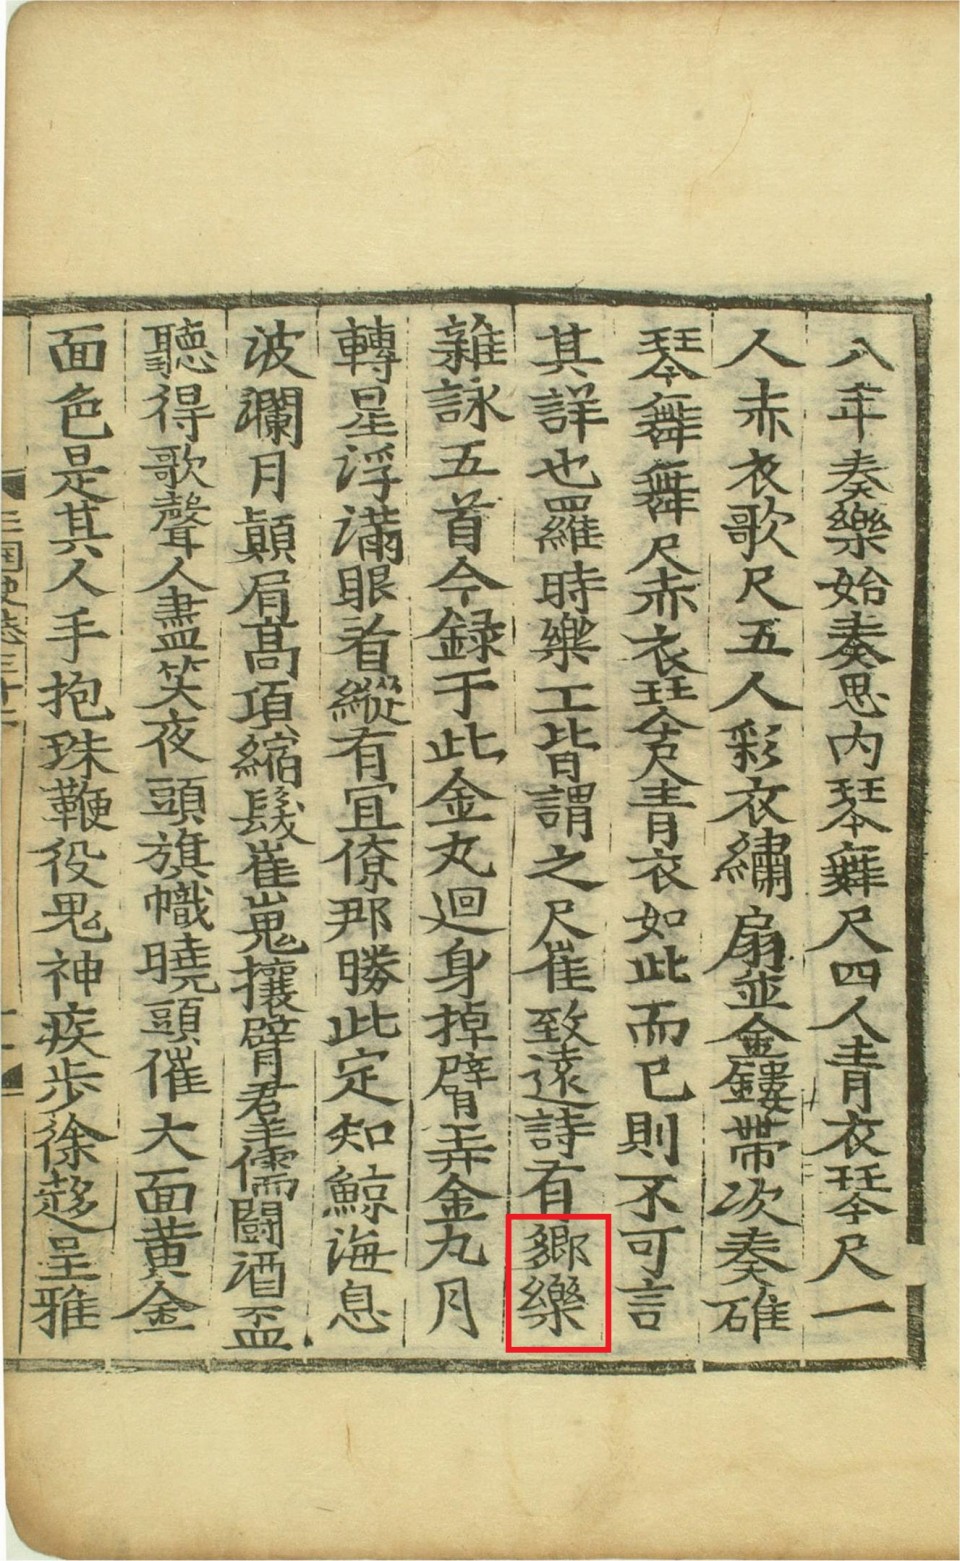 八年奏樂始奏思內琴舞尺四人青衣琴尺一
人赤衣歌尺五人彩衣繡扇並金鏤帶次奏碓
琴舞舞尺赤衣琴尺青衣如此而已則不可言
其詳也羅時樂工皆謂之尺崔致遠詩有鄉樂
雜詠五首今録于此金丸迴身掉臂弄金丸月
轉星浮滿眼看縱有宜僚那勝此定知鯨海息
波瀾月顚肩髙項縮髮崔嵬攘臂羣儒鬪酒盃
聽得歌聲人盡笑夜頭旗幟曉頭催大面黃金
面色是其人手抱珠鞭役鬼神疾步徐趍呈雅
三國史卷三十二